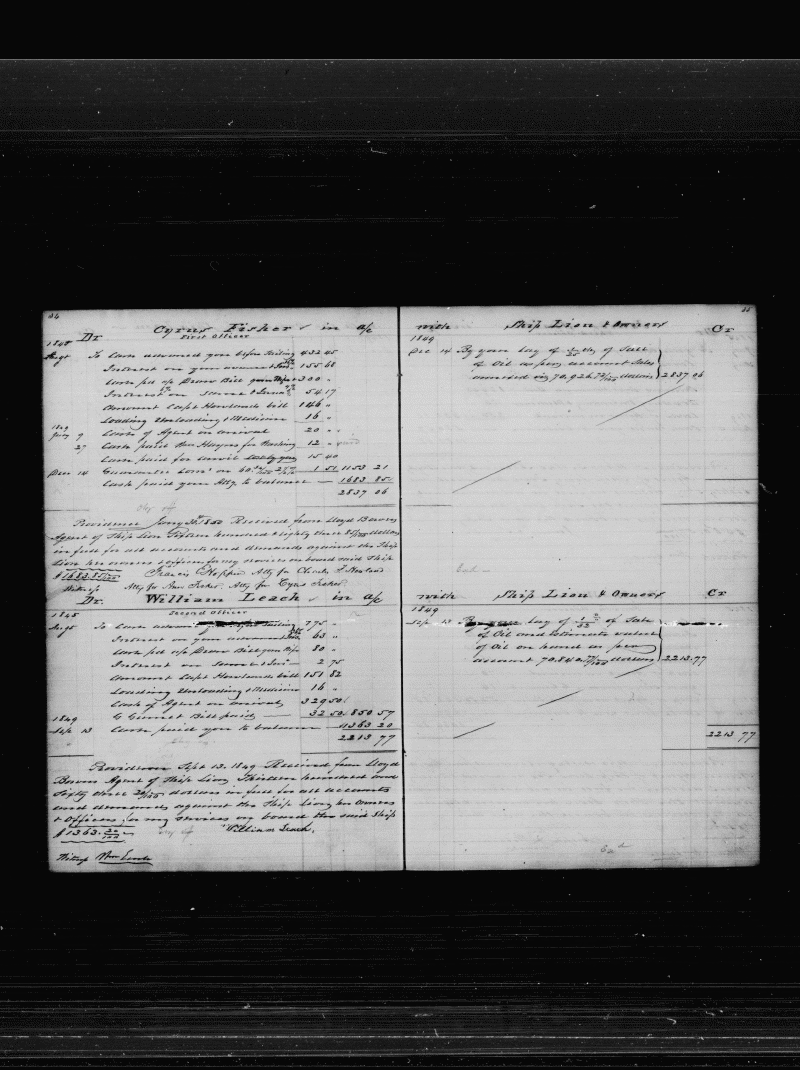 Dr Cyrus Fisher in a/c
First Officer
1845
To Cash advanced you before Sailing 432 45
Interest on your advance & Insu. 155 68
Cash pd o/s Dever Bill your 300 "
Interest on Same & Insu. 54 17
Amount Capt Howlands bill 146 "
Loading Unloading & Medicine 16 "
9 Cash of Agent on arrival 20 "
27 Cash paid for Washing 12 "
Cash paid for 15 40
Dec 14 Guarantee Com on 1 51 1153 21
Cash paid your Atty to balance 1683 85
2837 06
Providence Jany 1850 Received from Lloyd Bowers
Agent of Ship Lion Sixteen hundred & Eighty three 85/100 dollars
in full for all accounts and demands against the Ship
Lion her owners & officers for my services on board said Ship
$1683.85/100
Witness Atty for Cyrus Fisher
Dr. William Leach in a/c
Second Officer
1845
To Cash advanced Sailing 775 "
Interest on your advance & Insu. 63 "
Cash pd o/s Dever Bill your 80 "
Interest on Same & Insu 2 75
Amount Capt Howlands bill 151 82
Loading Unloading & Medicine 16 "
Cash of Agent on arrival 329 50
1849 Bill paid 32 50 850 57
Sep 13 Cash paid you to balance 1363 20
2213 77
Providence Sept 13. 1849 Received from Lloyd
Bowers Agent of Ship Lion, Thirteen hundred and
Sixty three 20/100 dollars in full for all accounts
and demands against the Ship Lion, her Owners
& Officers for my services on board the said Ship
$1363.20/100 William Leach.
Witness
55
with Ship Lion & Owners Cr
1849
Dec 14 By your Lay of 1/25 of Sale
of Oil as per account Sales
annexed 70,926 dollars 2837 06
with Ship Lion & Owners Cr
1849
Sep 13 By your lay of of Sale
of Oil and Estimate value
of Oil on hand as per
account 70.840 dollars 2213.77
2213 77